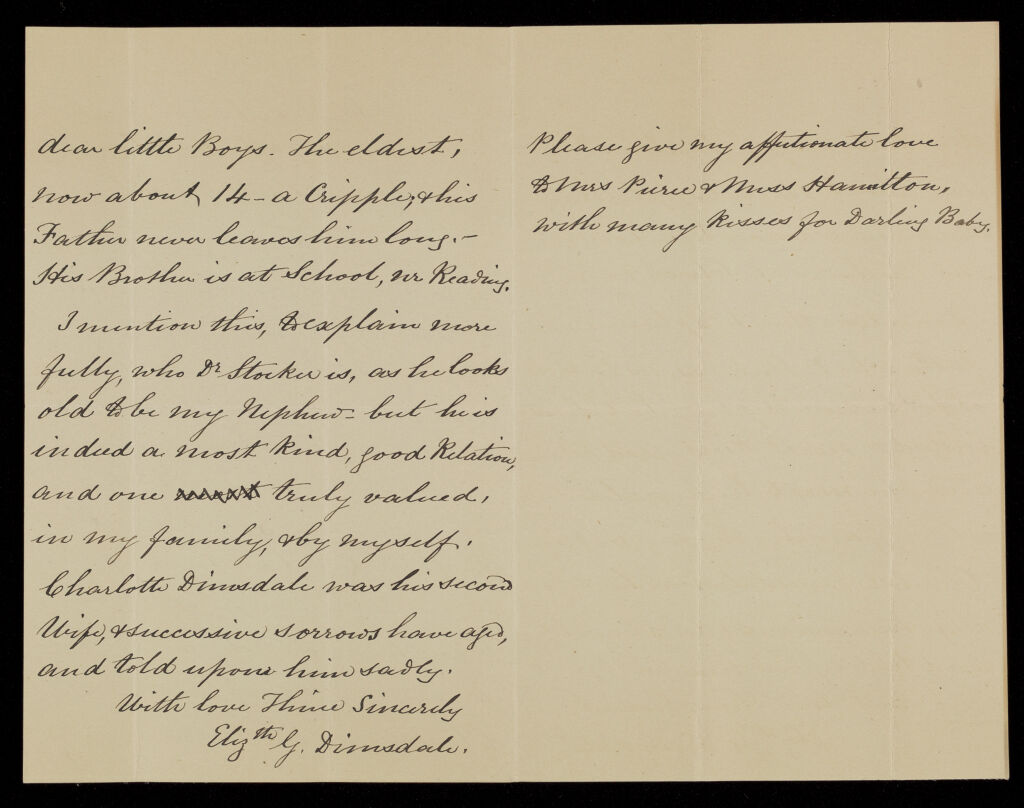 dear little Boys. The eldest,
now about 14 – a Cripple, & his
Father never leaves him long. –
His Brother is at School, nr Reading.
I mention this, to explain more
fully, who Dr Stocker is, as he looks
old to be my Nephew – but he is
indeed a most kind, good Relation,
and one truly valued,
in my family, & by myself.
Charlotte Dimsdale was his second
Wife, & successive sorrows have aged,
and told upon him sadly.
With love Thine Sincerely
Elizth G. Dimsdale.
Please give my affectionate love
to Mrs Pierce & Miss Hamilton,
with many Kisses for Darling Baby.